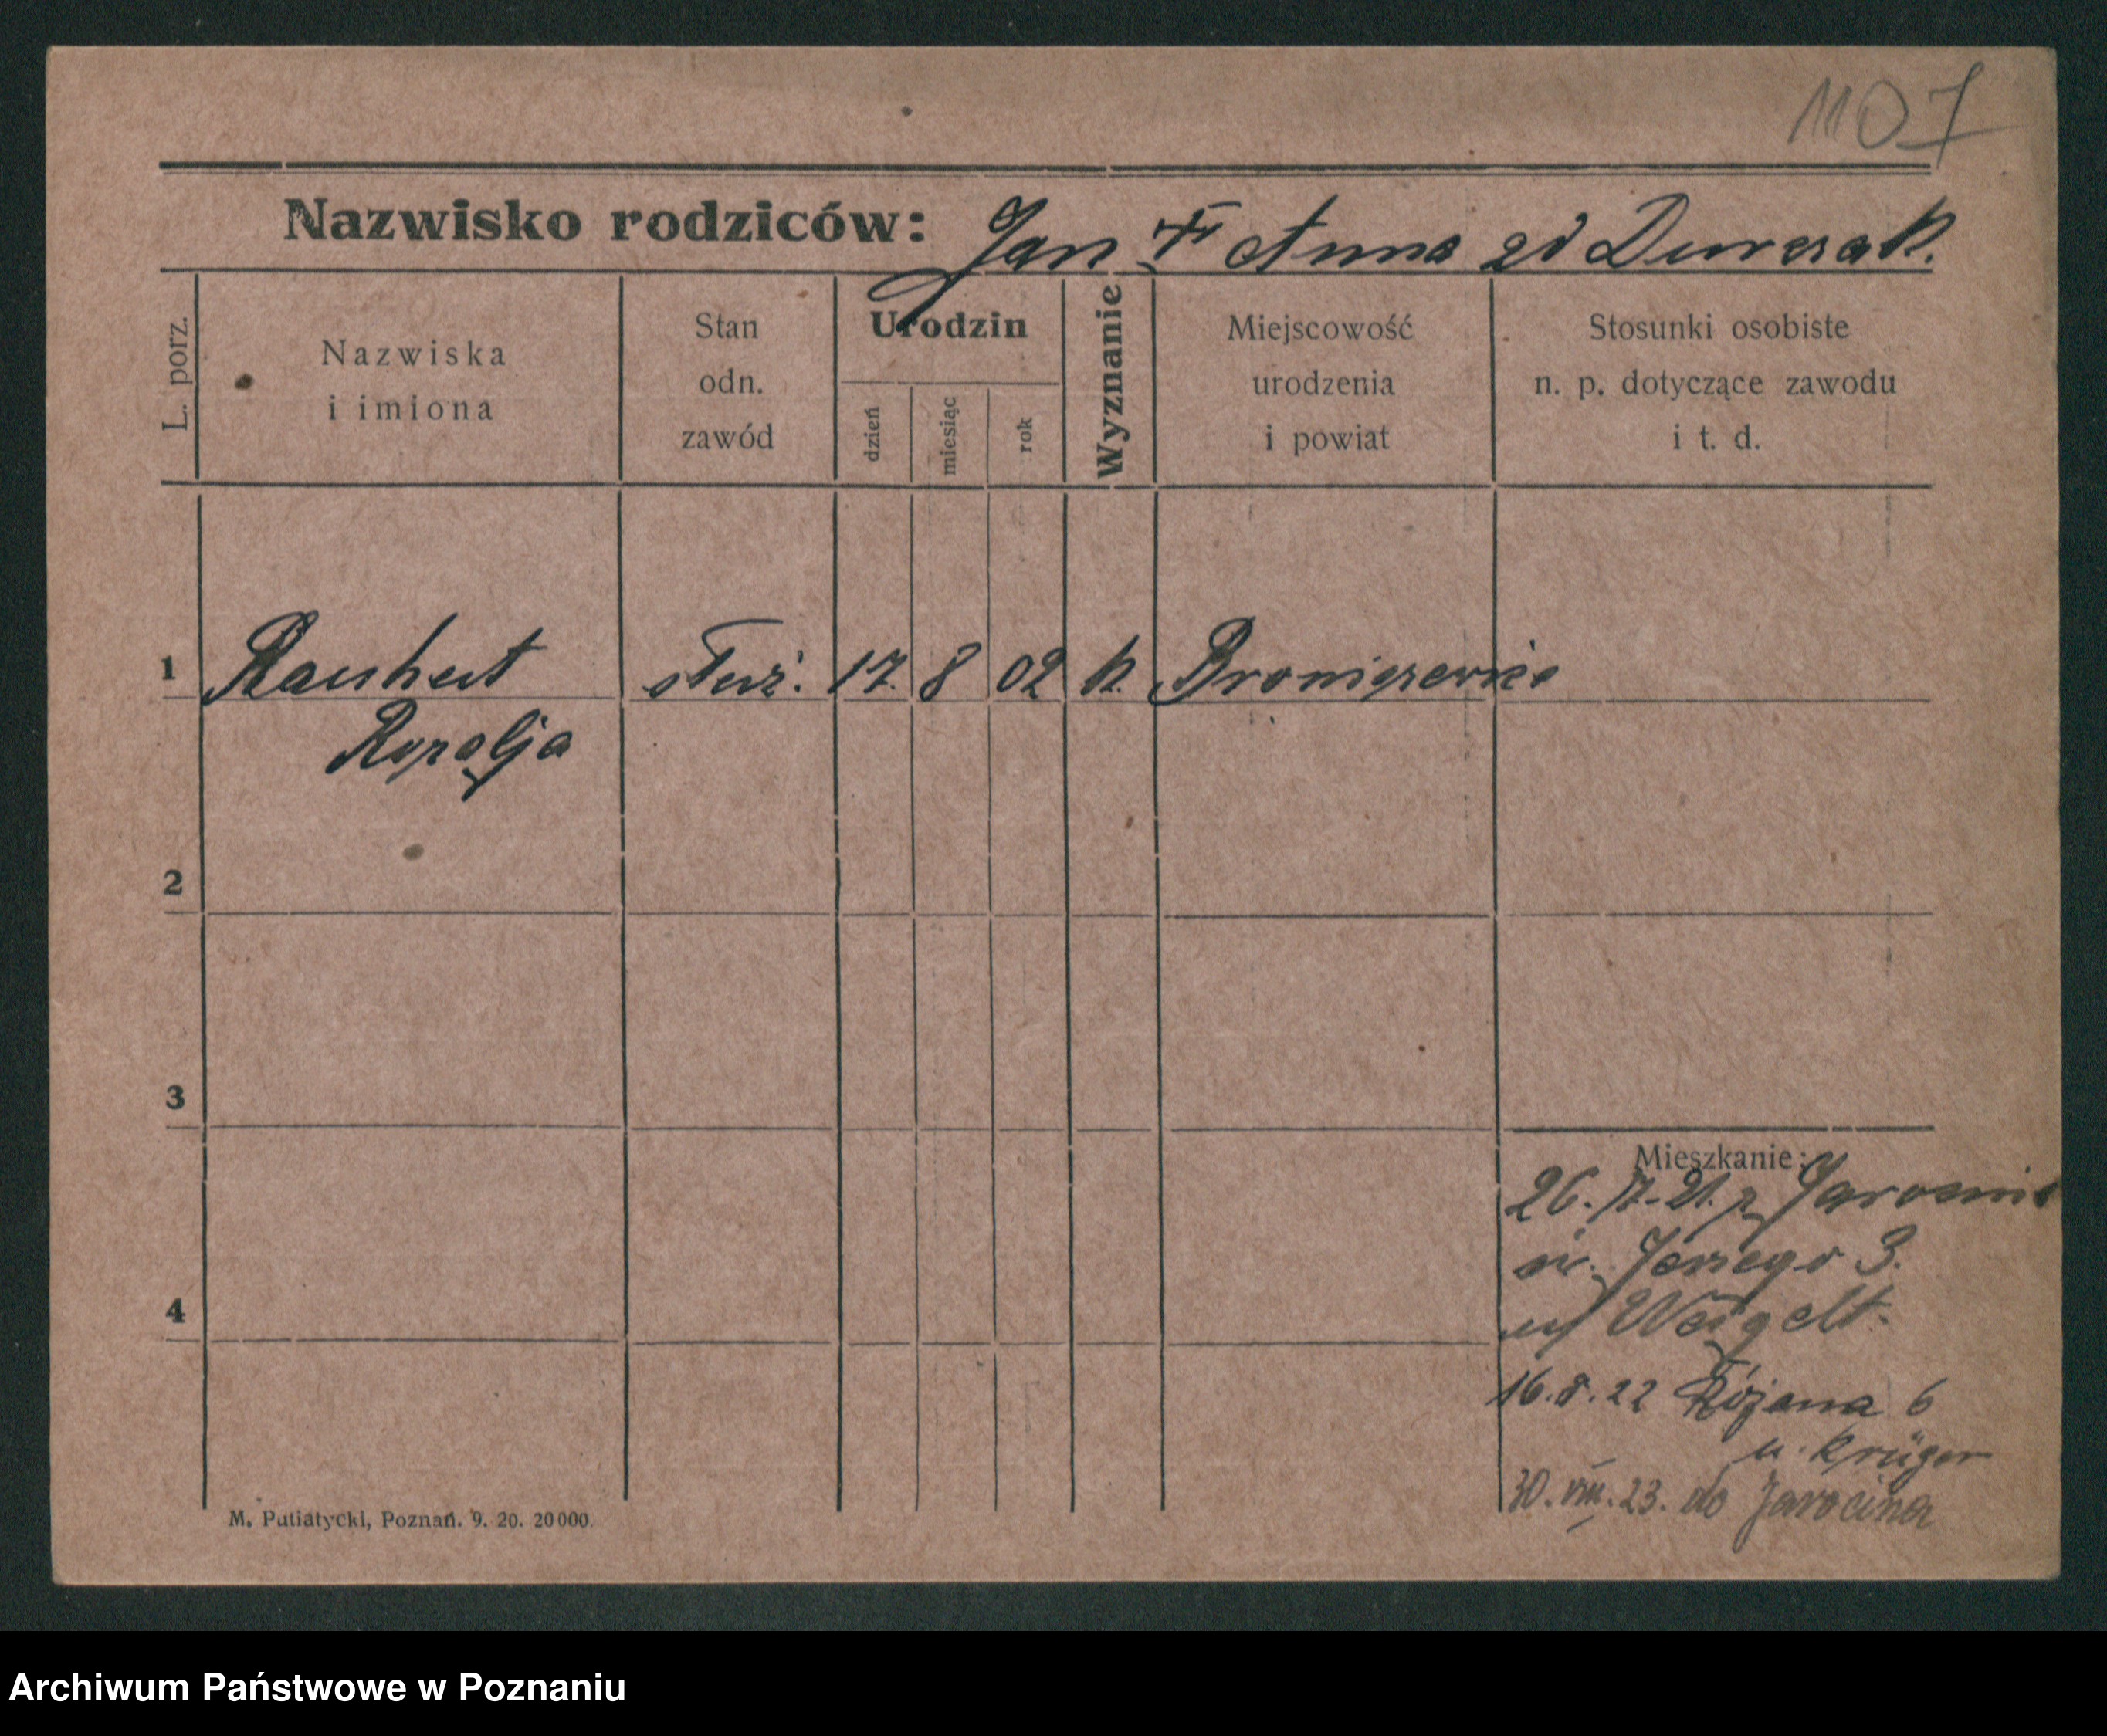 1107
Nazwisko rodziców: Jan + Anna zd Durczak.
L. porz.
Nazwiska
i imiona
Stan
odn.
zawód
Urodzin
dzień
miesiąc
rok
Wyznanie
Miejscowość
urodzenia
i powiat
Stosunki osobiste
n. p. dotyczące zawodu
i t. d.
1 służ. 17. 8 02 k.
Rozalja
2
3
4
Mieszkanie:
26. 7. 21. z Jarocin
św. Jerzego 3.
Weigelt.
16.8.22 6
u. Krüger
30. VIII. 23. do Jarocina
M. Putiatycki, Poznań. 9. 20. 20000.
Archiwum Państwowe w Poznaniu